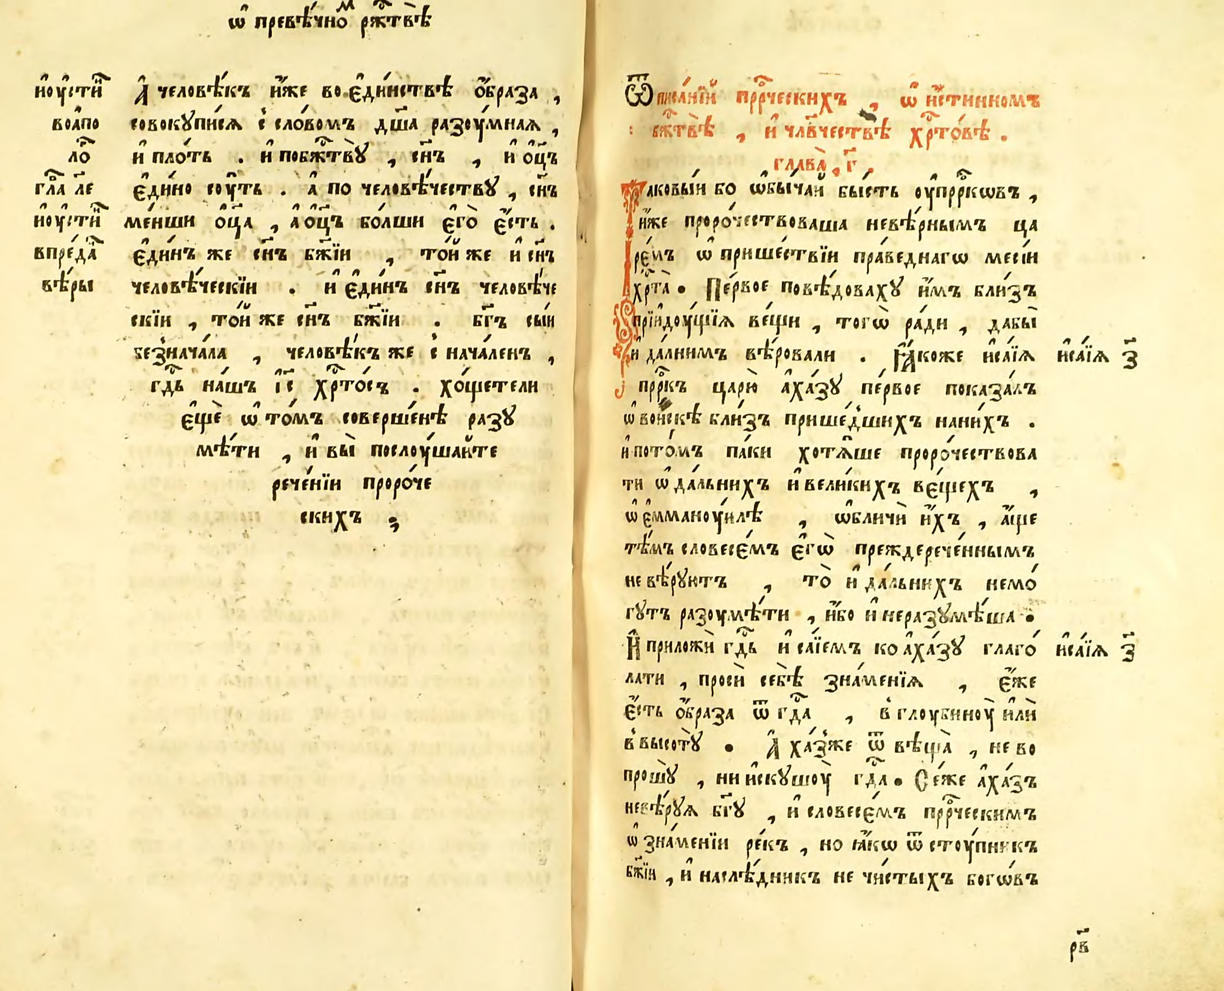 ѡ҆ превѣ́чно рж҃твѣ
и҆оу҆стї
А҆ человѣ́къ и҆́же во є҆ди́нствѣ ѡ҆́браза ,
во а҆по
совокꙋпи́сѧ с̾ сло́вомъ дш҃а разоу́мнаѧ ,
ло́
и҆ пло́ть . и҆ по бж҃твꙋ̀ , сн҃ъ , и҆ ѻ҆ц҃ъ
гл҃а л҃е
є҆ди́но соу́ть . а҆ по человѣ́честву , сн҃ъ
и҆оу҆стї
ме́нши ѻ҆ц҃а , а҆ ѻ҆ц҃ъ бо́лши є҆гѡ̀ є҆́сть .
в пре́да
є҆ди́нъ же сн҃ъ бж҃їи , то́и же и҆ сн҃ъ
вѣ́ры
человѣ́ческїи . и҆ є҆ди́нъ сн҃ъ человѣ́че
скїи , то́и же сн҃ъ бж҃їи . бг҃ъ сы́и
безнача́ла , человѣ́къ же с̾ нача́ленъ ,
гд҃ь на́шъ і҆с҃ хрⷭ҇то́съ . хо́щете ли
є҆щѐ ѡ҆ то́мъ соверше́нѣ разꙋ
мѣ́ти , и҆ вы̀ послоу́шаите
рече́нїи проро́че
скихъ ;
Ѿ писа́нїй прⷪ҇ро́ческихъ , ѡ҆ и҆́стинномъ
бж҃твѣ̀ , и҆ чл҃вчествѣ хрⷭ҇то́вѣ .
глава̀ , г҃ ,
Таковы́и бо ѡ҆бы́чаи бы́сть оу҆ прⷪ҇ркѡвъ ,
и҆́же проро́чествоваша невѣ́рнымъ ца
ре́мъ ѡ҆ прише́ствїи пра́веднагѡ месі́и
хрⷭ҇та̀ . Пе́рвое повѣ́доваху и҆̀мъ бли́зъ
прїидоу́щїѧ ве́щи , тогѡ̀ ра́ди , дабы̀
и҆ да́лнимъ вѣ́ровали . Ꙗ҆́коже и҆са́їѧ и҆са́їѧ з҃
прⷪ҇ркъ царю̀ а҆ха́зу пе́рвое показа́лъ
ѡ҆ во́искѣ бли́зъ прише́дшихъ на ни́хъ .
и҆ пото́мъ па́ки хотѧ́ше проро́чествова
ти ѡ҆ да́льнихъ и҆ вели́кихъ ве́щехъ ,
ѡ҆ є҆ммануи́лѣ , ѡ҆бличѝ и҆́хъ , а҆́ще
тѣ́мъ словесе́мъ є҆гѡ̀ преждерече́ннымъ
не вѣ́руютъ , то̀ и҆ да́льнихъ не мо́
гутъ разоумѣ́ти , и҆́бо и҆ не разумѣ́ша .
И҆ приложѝ гд҃ь и҆ са́їемъ ко а҆ха́зу глаго́ и҆са́їѧ з҃
лати , просѝ себѣ̀ зна́менїѧ , є҆́же
є҆́сть ѻ҆́браза ѿ гд҃а , в̾ глоубиноу̀ и҆лѝ
в̾ высотꙋ̀ . А҆ха́зже ѿ вѣща̀ , не во
прошꙋ̀ , ни и҆скушоу̀ гд҃а . Се́же а҆ха́зъ
не вѣ́руѧ бг҃у , и҆ словесе́мъ прⷪ҇ро́ческимъ
ѡ҆ зна́менїи ре́къ , но ꙗ҆́кѡ ѿстоу́пникъ
бж҃їи , и҆ наслѣ́дникъ не чи́стыхъ бого́въ
рв҃